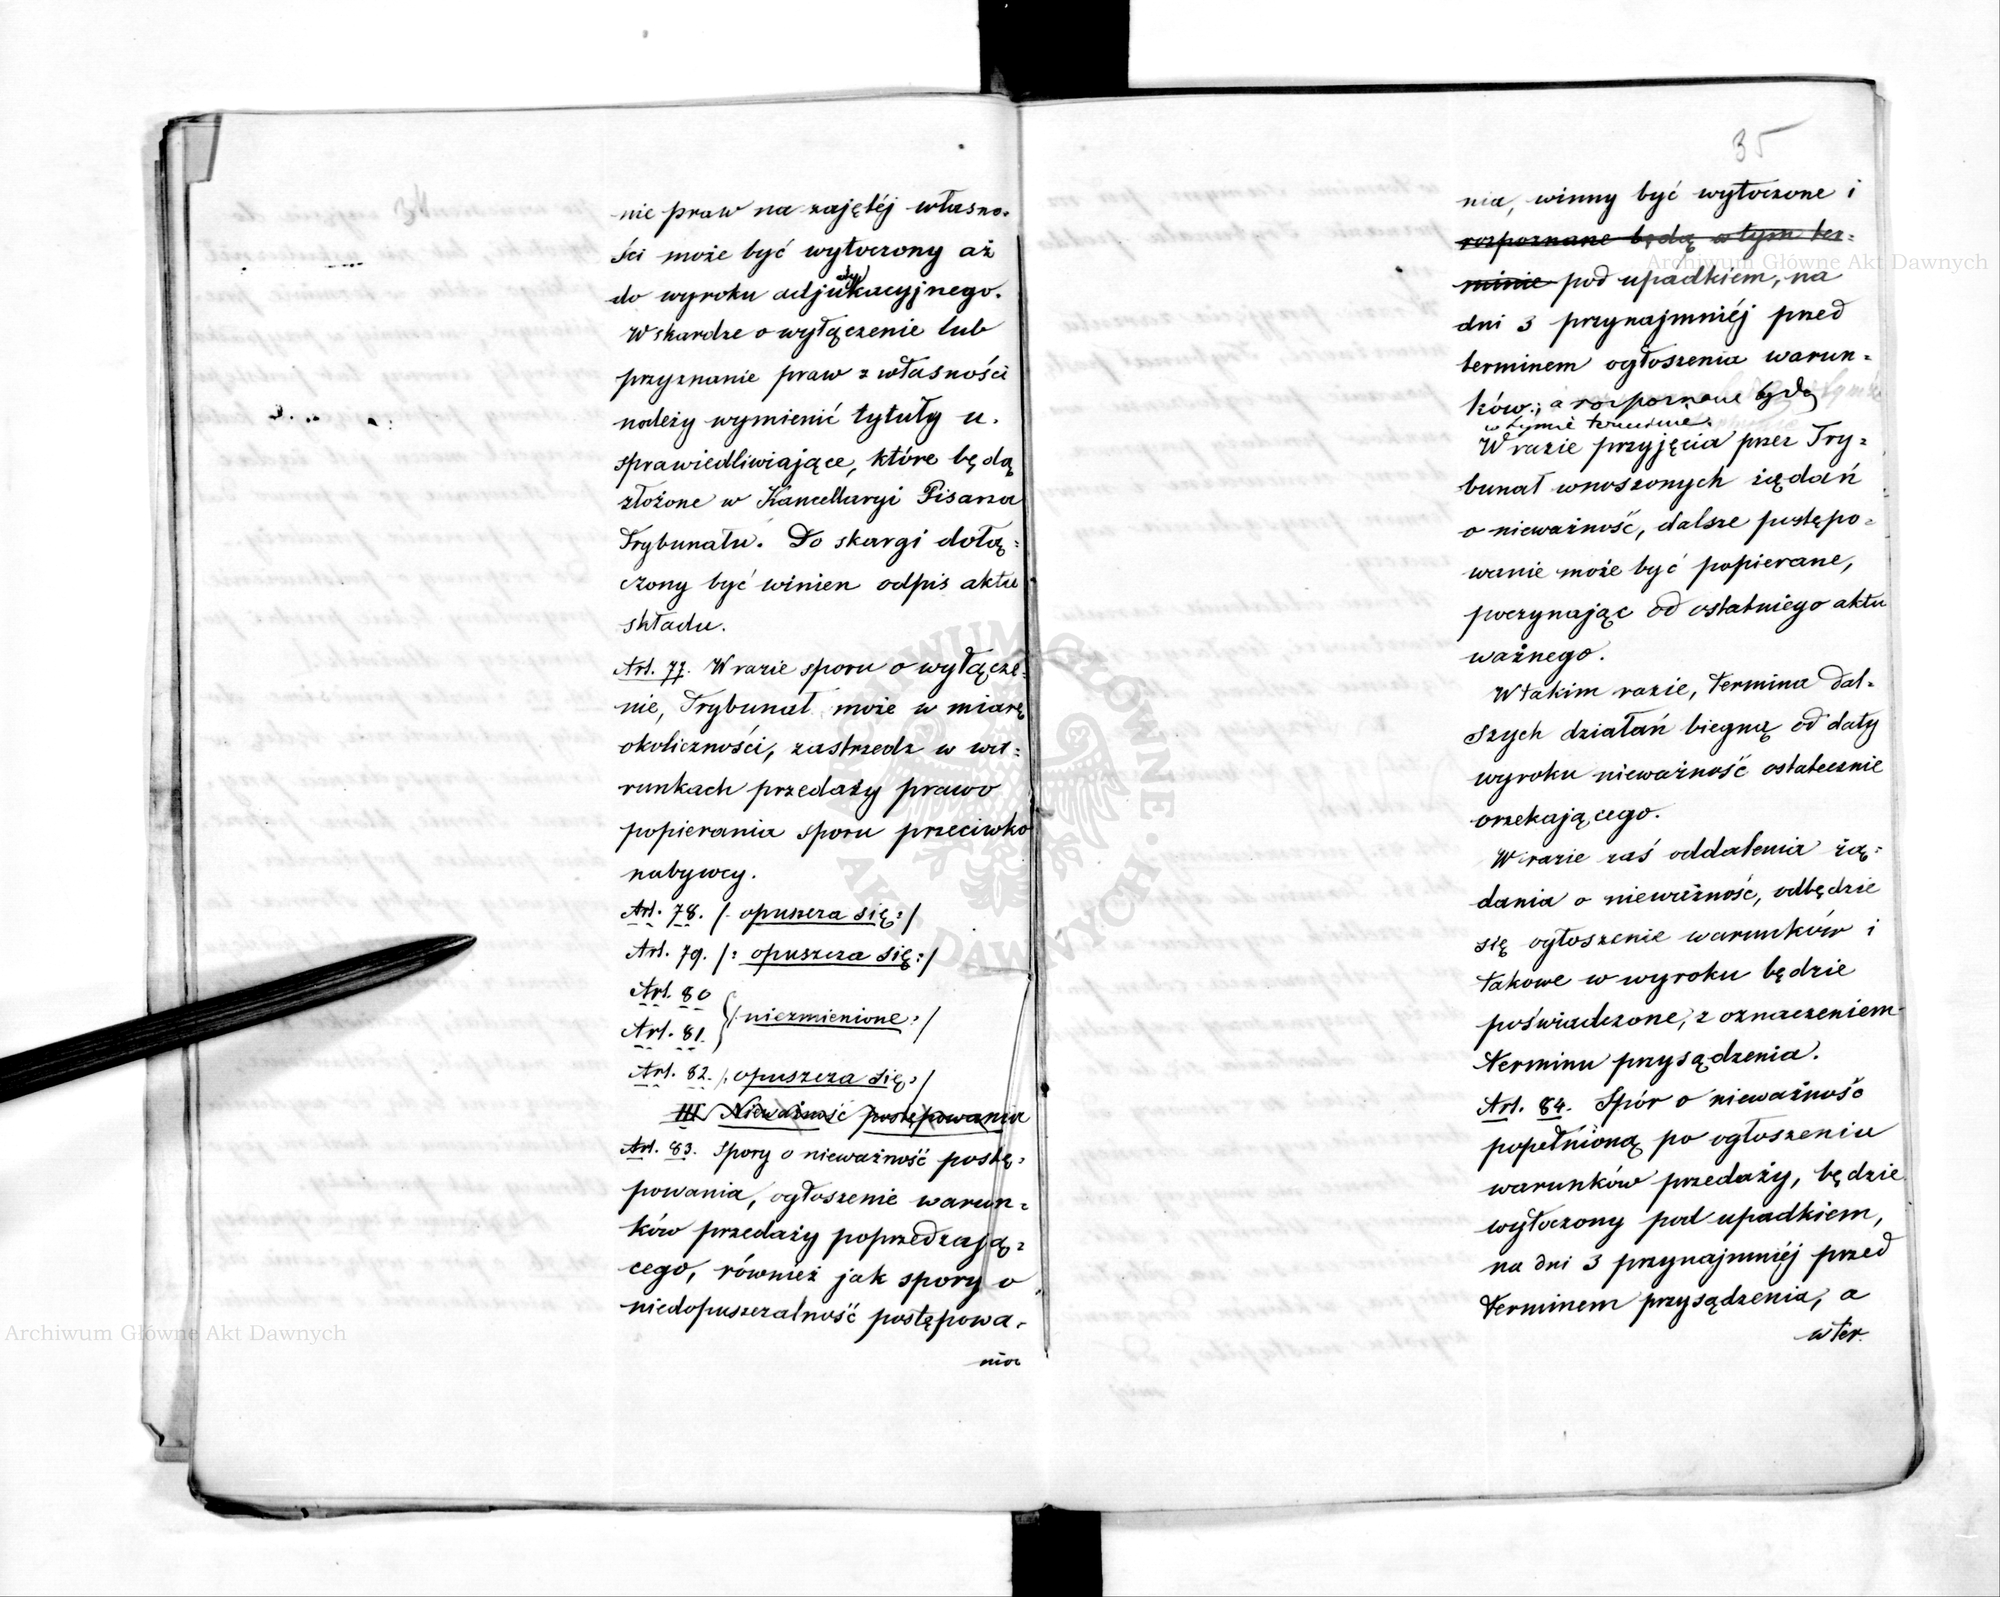 nie praw na zajętéj własno-
ści może być wytoczony aż
dy
do wyroku adjukacyjnego.
W skardze o wyłączenie lub
przyznanie praw z własności
należy wymienić tytuły u-
sprawiedliwiające, które będą
złożone w Kancellaryi Pisarza
Trybunału. Do skargi dołą=
czony być winien odpis aktu
składu.
Art. 77. W razie sporu o wyłącze-
nie, Trybunał może w miarę
okoliczności, zastrzedz w wa=
runkach przedaży prawo
popierania sporu przeciwko
nabywcy.
Art. 78. /: opuszcza się:/
Art. 79. /: opuszcza się:/
Art. 80
/:niezmienione:/
Art. 81.
Art. 82. /:opuszcza się:/
III Nieważność postępowania
Art. 83. Spory o nieważność postę=
powania, ogłoszenie warun=
ków przedaży poprzedzają=
cego, również jak spory o
niedopuszczalność postępowa-
nia
35
nia, winny być wytoczone i
rozpoznane będą w tym ter=
minie pod upadkiem, na
dni 3 przynajmniéj przed
terminem ogłoszenia warun=
ków; a rozpoznane będą
w tymże terminie.
W razie przyjęcia przez Try=
bunał wnoszonych żądań
o nieważność, dalsze postępo=
wanie może być popierane,
poczynając od ostatniego aktu
ważnego.
W takim razie, termina dal=
szych działań biegną od daty
wyroku nieważność ostatecznie
orzekającego.
W razie zaś oddalenia żą=
dania o nieważność, odbędzie
się ogłoszenie warunków i
takowe w wyroku będzie
poświadczone, z oznaczeniem
terminu przysądzenia.
Art. 84. Spór o nieważność
popełnioną po ogłoszeniu
warunków przedaży, będzie
wytoczony pod upadkiem,
na dni 3 przynajmniéj przed
terminem przysądzenia, a
w ter.
Archiwum Główne Akt Dawnych
Archiwum Główne Akt Dawnych
ARCHIWUM GŁÓWNE AKT DAWNYCH